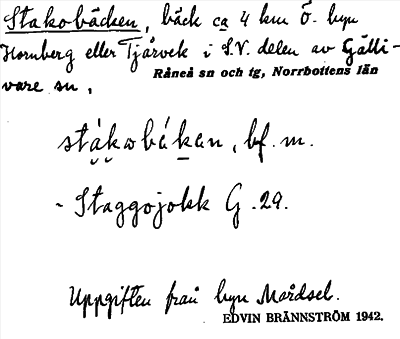 Stakobäcken, bäck ca 4 km Ö. byn
Hornberg eller Tjärvek i S.V. delen av Gälli-
Råneå sn och tg, Norrbottens län
vare sn,
stákobákan, bf. m.
~ Staggojokk G .29.
Uppgiften från byn Mårdsel.
EDVIN BRÄNNSTRÖM 1942.